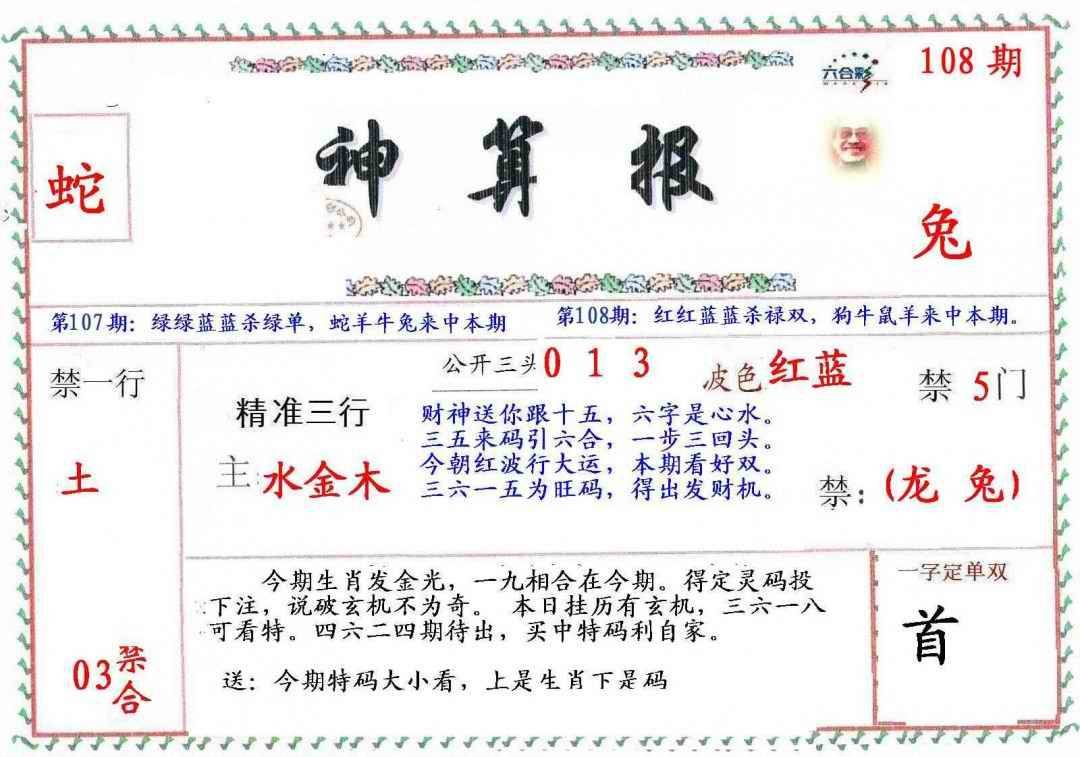 六合彩
108 期
神算报
蛇
兔
第107期：绿绿蓝蓝杀绿单，蛇羊牛兔来中本期
第108期：红红蓝蓝杀禄双，狗牛鼠羊来中本期。
禁一行
土
03禁合
公开三头 0 1 3
波色红蓝
禁 5门
精准三行
主：水金木
财神送你跟十五，六字是心水。
三五来码引六合，一步三回头。
今朝红波行大运，本期看好双。
三六一五为旺码，得出发财机。
禁：(龙 兔)
今期生肖发金光，一九相合在今期。得定灵码投
下注，说破玄机不为奇。 本日挂历有玄机，三六一八
可看特。四六二四期待出，买中特码利自家。
送：今期特码大小看，上是生肖下是码
一字定单双
首